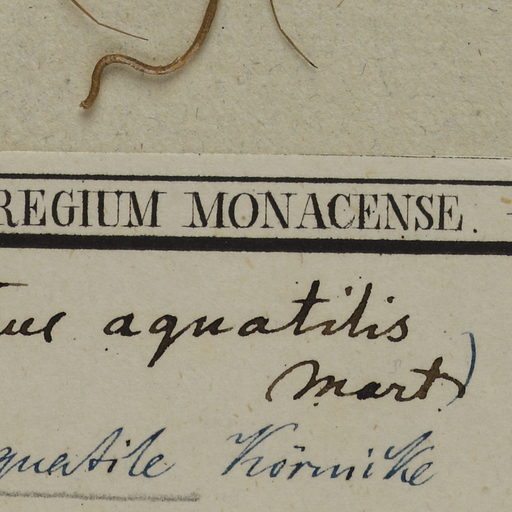 REGIUM MONACENSE.
aquatilis
Mart)
quatile Körnicke